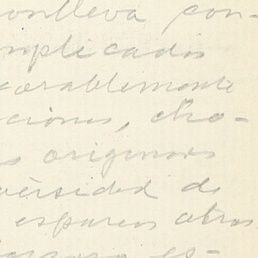 onlleva con-
mplicados
orablemente
ciones, cho-
s origenes
versidad de
esparce otros
es-